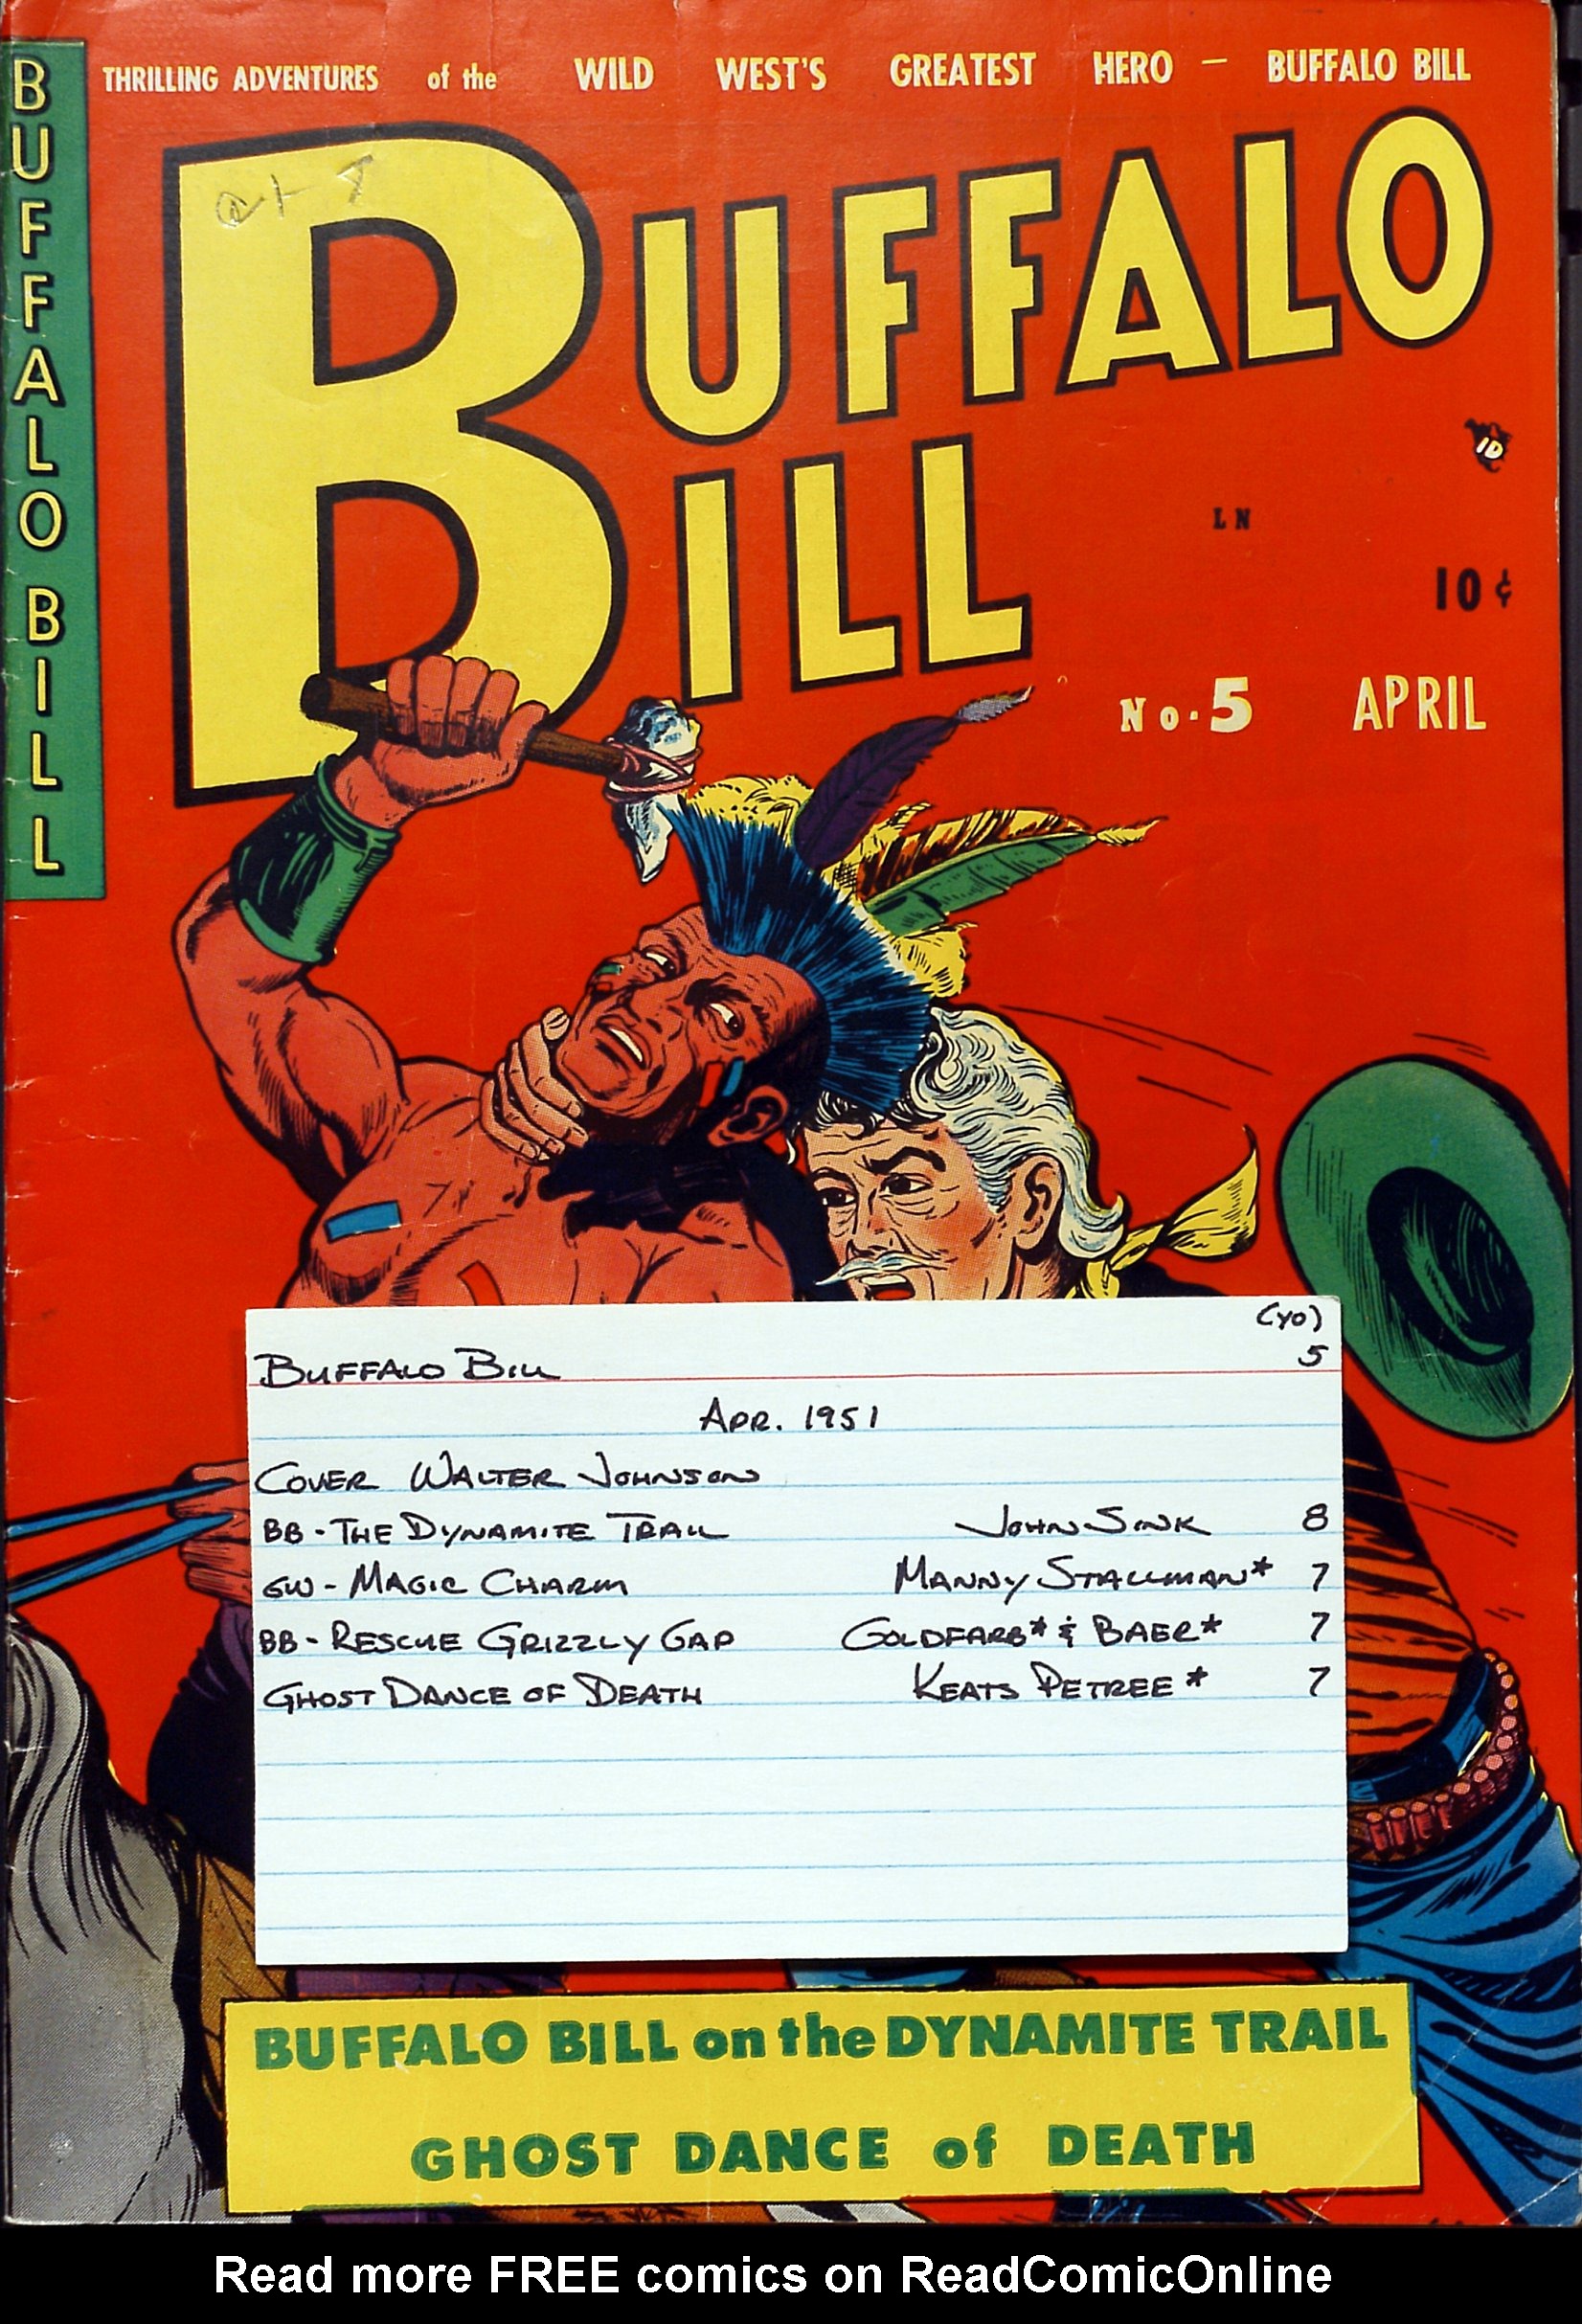 THRILLING ADVENTURES of the WILD WEST'S GREATEST HERO — BUFFALO BILL
BUFFALO BILL
BUFFALO
BILL
10
LN
10¢
No. 5 APRIL
(YO)
BUFFALO BILL 5
APR. 1951
COVER WALTER JOHNSON
BB - THE DYNAMITE TRAIL JOHN SINK 8
GW - MAGIC CHARM MANNY STALLMAN* 7
BB - RESCUE GRIZZLY GAP GOLDFARB* & BAER* 7
GHOST DANCE OF DEATH KEATS PETREE* 7
BUFFALO BILL on the DYNAMITE TRAIL
GHOST DANCE of DEATH
Read more FREE comics on ReadComicOnline